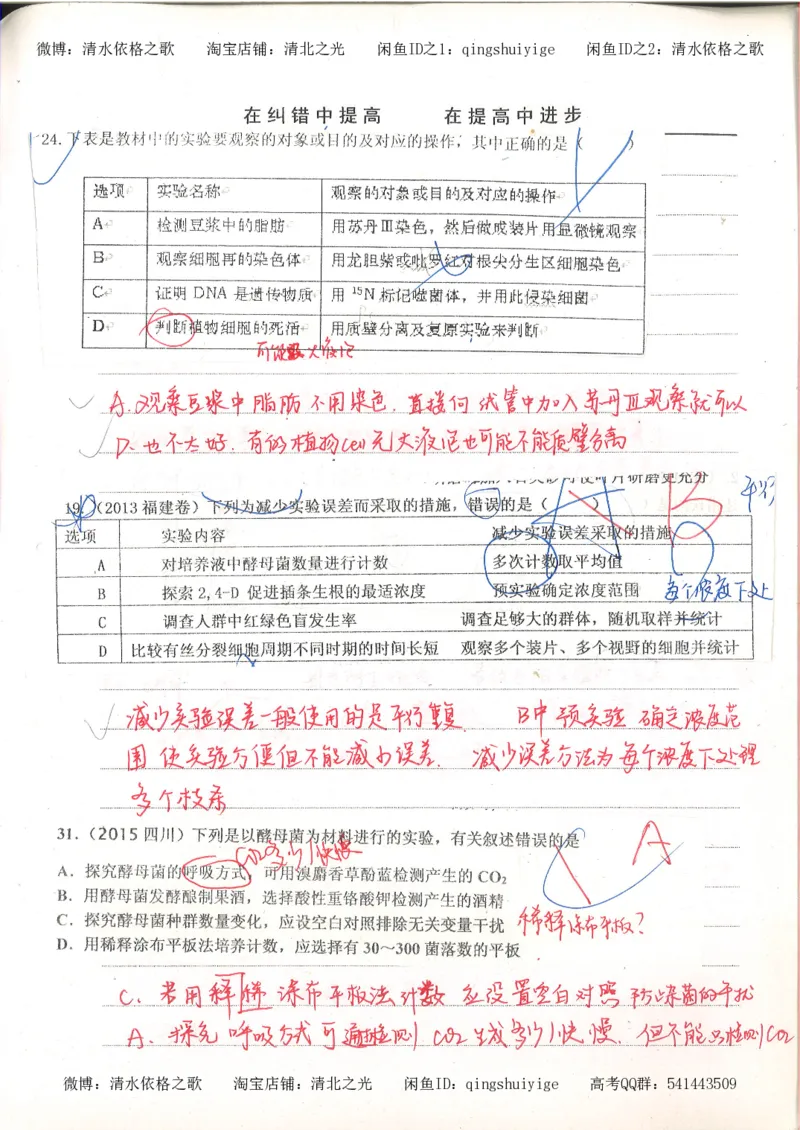 微博：清水依格之歌 淘宝店铺：清北之光 闲鱼ID之1：qingshuiyige 闲鱼ID之2：清水依格之歌
在纠错中提高 在提高中进步
24.下表是教材中的实验要观察的对象或目的及对应的操作，其中正确的是（ ）
选项 实验名称 观察的对象或目的及对应的操作
A 检测豆浆中的脂肪 用苏丹Ⅲ染色，然后做成装片用显微镜观察
B 观察细胞再的染色体 用龙胆紫或吡罗红对根尖分生区细胞染色
C 证明 DNA 是遗传物质 用 ¹⁵N 标记噬菌体，并用此侵染细菌
D 判断植物细胞的死活 用质壁分离及复原实验来判断
大液泡
A.观察豆浆中脂肪不用染色.直接向试管中加入苏丹Ⅲ观察就可以
D.也不太好.有的植物cell无大液泡也可能不能质壁分离
19.（2013 福建卷）下列为减少实验误差而采取的措施，错误的是（ ） A B 平行
选项 实验内容 减少实验误差采取的措施
A 对培养液中酵母菌数量进行计数 多次计数取平均值
B 探索 2,4-D 促进插条生根的最适浓度 预实验确定浓度范围 每个浓度下处
C 调查人群中红绿色盲发生率 调查足够大的群体，随机取样并统计
D 比较有丝分裂细胞周期不同时期的时间长短 观察多个装片、多个视野的细胞并统计
减少实验误差一般使用的是平行重复. B中预实验 确定浓度范
围 使实验方便但不能减少误差. 减少误差方法为每个浓度下处理
多个枝条
31.（2015 四川）下列是以酵母菌为材料进行的实验，有关叙述错误的是 A
CO2多少/快慢
A．探究酵母菌的呼吸方式，可用溴麝香草酚蓝检测产生的 CO₂
B．用酵母菌发酵酿制果酒，选择酸性重铬酸钾检测产生的酒精
C．探究酵母菌种群数量变化，应设空白对照排除无关变量干扰 稀释涂布平板？
D．用稀释涂布平板法培养计数，应选择有 30～300 菌落数的平板
C. 若用稀释涂布平板法计数 应设置空白对照 防止杂菌的干扰
A. 探究呼吸方式可通过检测 CO2 生成多少/快慢. 但不能只检测CO2
微博：清水依格之歌 淘宝店铺：清北之光 闲鱼ID：qingshuiyige 高考QQ群：541443509